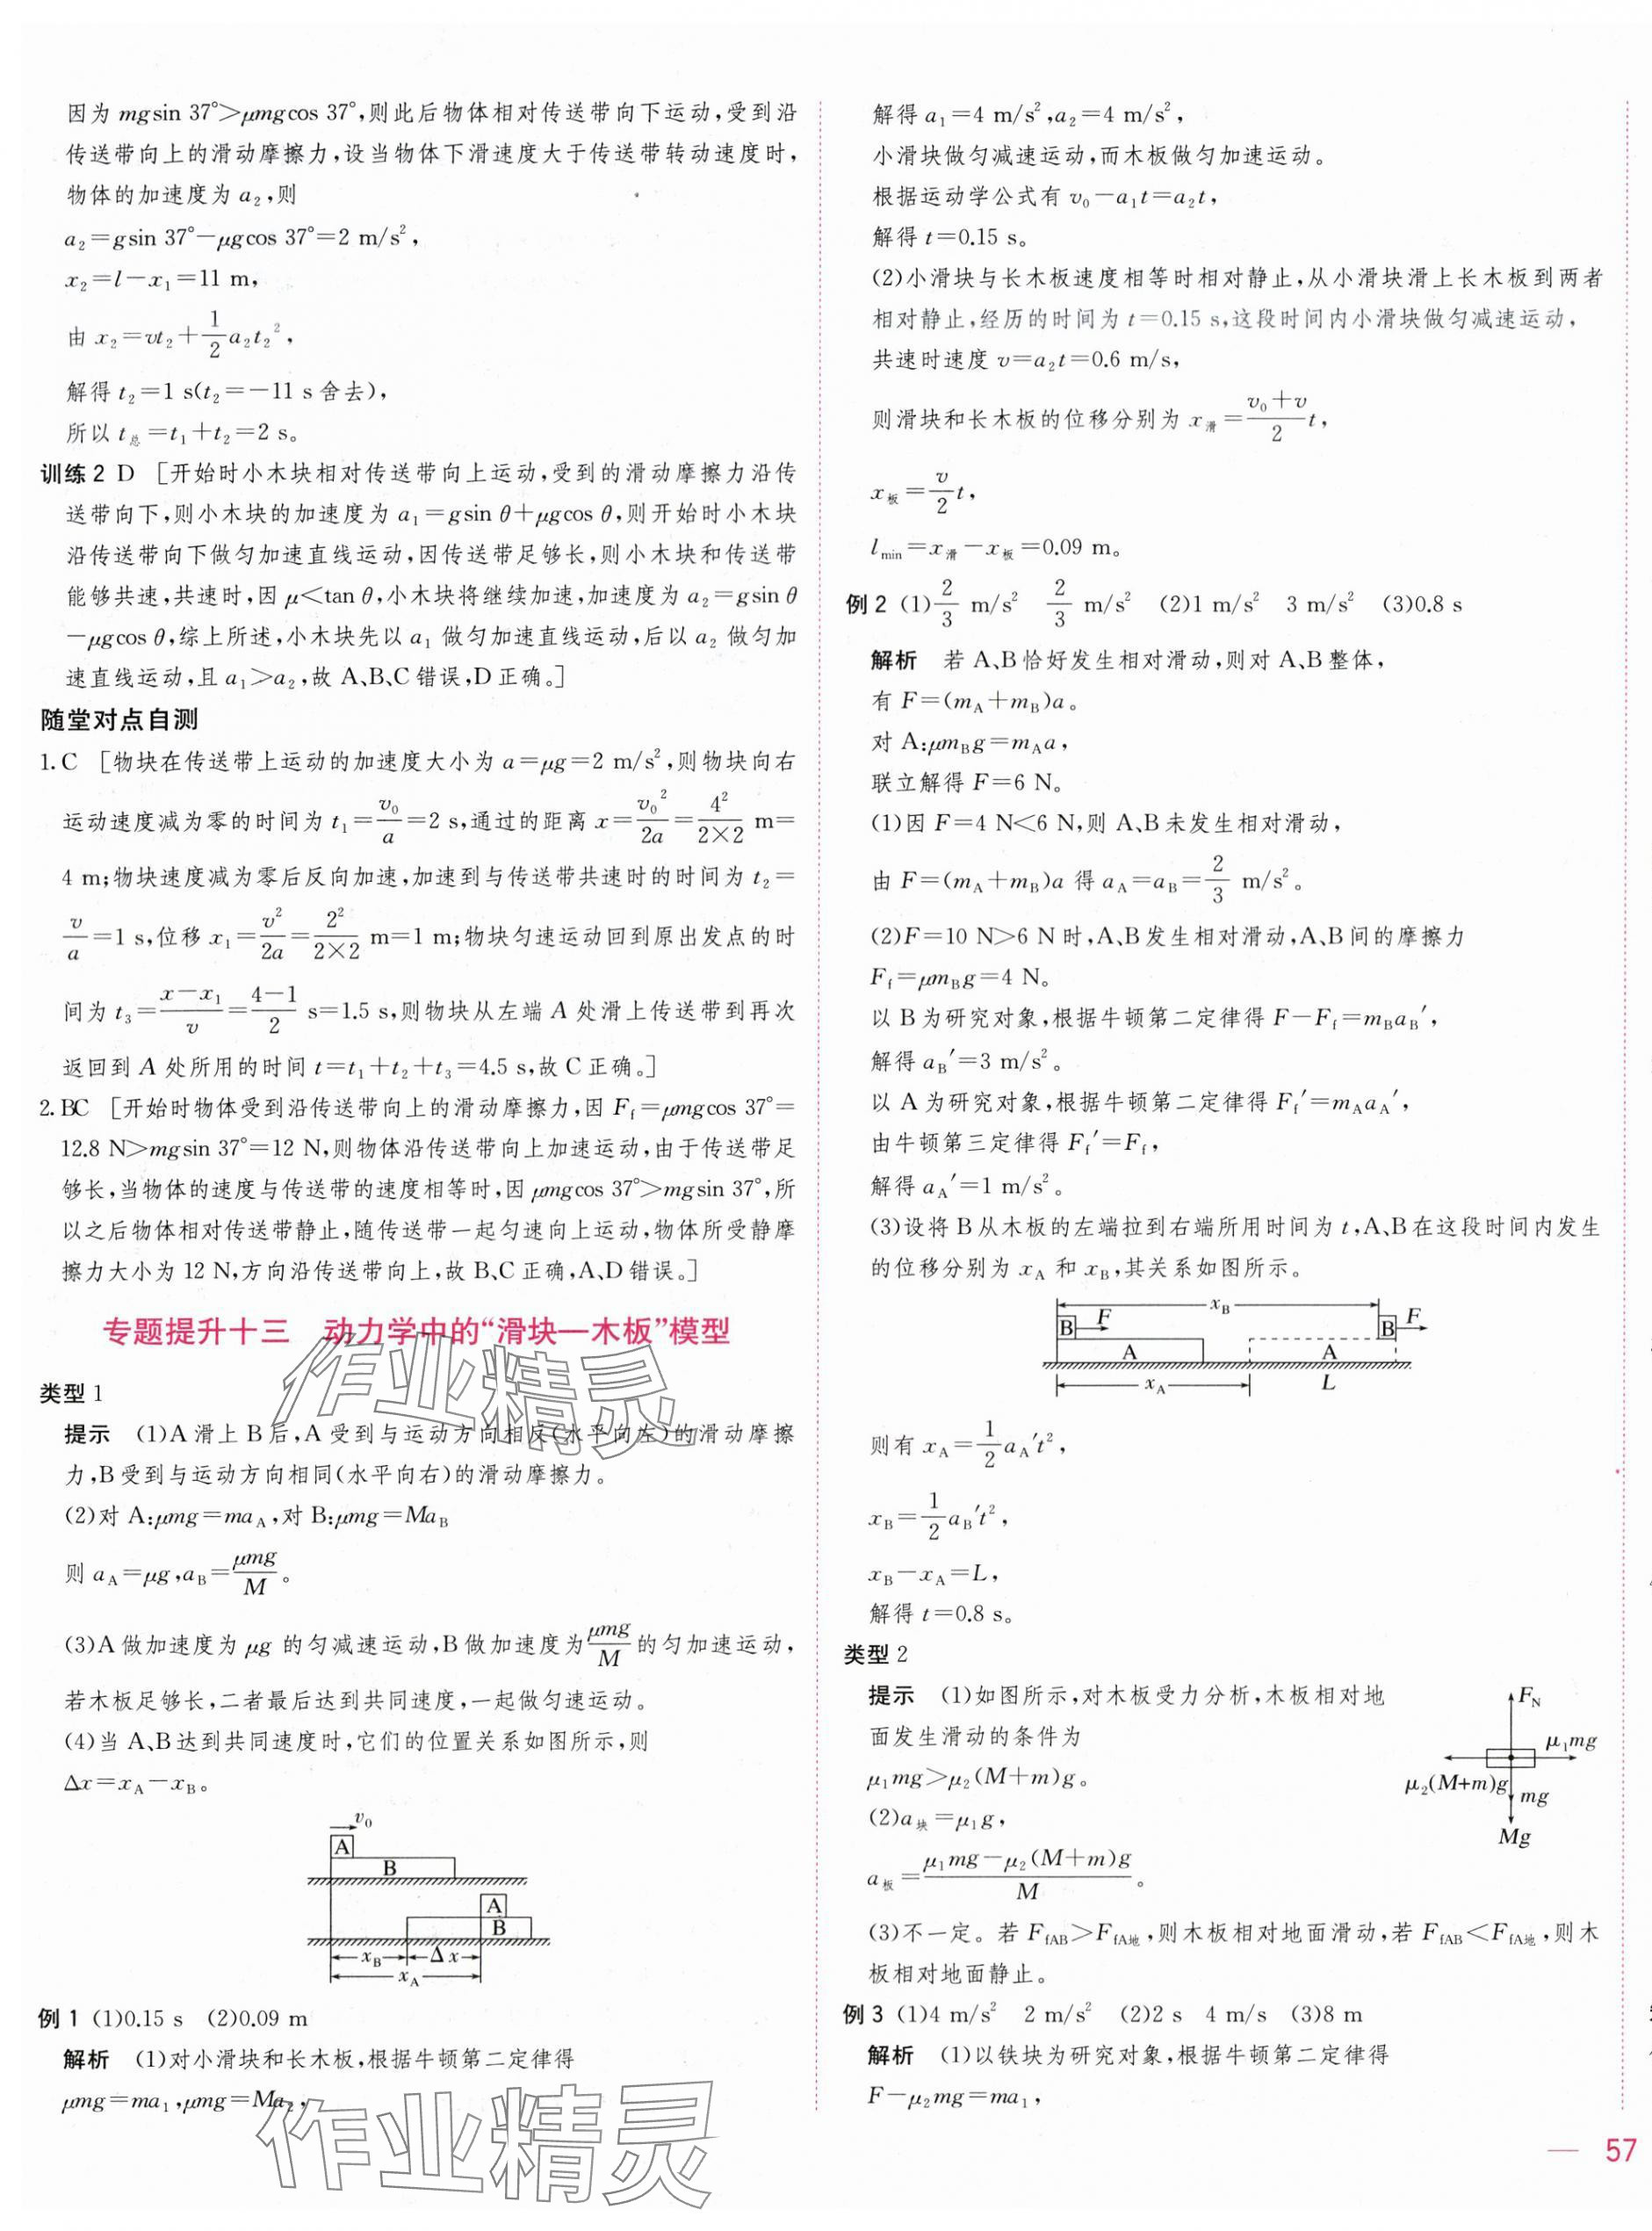 因为 mgsin 37°>μmgcos 37°,则此后物体相对传送带向下运动,受到沿
传送带向上的滑动摩擦力,设当物体下滑速度大于传送带转动速度时,
物体的加速度为 a₂,则
a₂=gsin 37°-μgcos 37°=2 m/s²,
x₂=l-x₁=11 m,
由 x₂=vt₂+1/2 a₂t₂²,
解得 t₂=1 s(t₂=-11 s 舍去),
所以 t总=t₁+t₂=2 s。
训练2 D [开始时小木块相对传送带向上运动,受到的滑动摩擦力沿传
送带向下,则小木块的加速度为 a₁=gsin θ+μgcos θ,则开始时小木块
沿传送带向下做匀加速直线运动,因传送带足够长,则小木块和传送带
能够共速,共速时,因 μ<tan θ,小木块将继续加速,加速度为 a₂=gsin θ
-μgcos θ,综上所述,小木块先以 a₁ 做匀加速直线运动,后以 a₂ 做匀加
速直线运动,且 a₁>a₂,故 A、B、C 错误,D 正确。]
随堂对点自测
1.C [物块在传送带上运动的加速度大小为 a=μg=2 m/s²,则物块向右
运动速度减为零的时间为 t₁=v₀/a=2 s,通过的距离 x=v₀²/2a=4²/2×2 m=
4 m;物块速度减为零后反向加速,加速到与传送带共速时的时间为 t₂=
v/a=1 s,位移 x₁=v²/2a=2²/2×2 m=1 m;物块匀速运动回到原出发点的时
间为 t₃=x-x₁/v=4-1/2 s=1.5 s,则物块从左端 A 处滑上传送带到再次
返回到 A 处所用的时间 t=t₁+t₂+t₃=4.5 s,故 C 正确。]
2.BC [开始时物体受到沿传送带向上的滑动摩擦力,因 Ff=μmgcos 37°=
12.8 N>mgsin 37°=12 N,则物体沿传送带向上加速运动,由于传送带足
够长,当物体的速度与传送带的速度相等时,因 μmgcos 37°>mgsin 37°,所
以之后物体相对传送带静止,随传送带一起匀速向上运动,物体所受静摩
擦力大小为 12 N,方向沿传送带向上,故 B、C 正确,A、D 错误。]
专题提升十三 动力学中的“滑块—木板”模型
类型 1
提示 (1)A 滑上 B 后,A 受到与运动方向相反(水平向左)的滑动摩擦
力,B 受到与运动方向相同(水平向右)的滑动摩擦力。
(2)对 A:μmg=maA,对 B:μmg=MaB
则 aA=μg,aB=μmg/M。
(3)A 做加速度为 μg 的匀减速运动,B 做加速度为μmg/M的匀加速运动,
若木板足够长,二者最后达到共同速度,一起做匀速运动。
(4)当 A、B 达到共同速度时,它们的位置关系如图所示,则
Δx=xA-xB。
v₀
A
B
A
B
xB Δx
xA
例 1 (1)0.15 s (2)0.09 m
解析 (1)对小滑块和长木板,根据牛顿第二定律得
μmg=ma₁,μmg=Ma₂,
解得 a₁=4 m/s²,a₂=4 m/s²,
小滑块做匀减速运动,而木板做匀加速运动。
根据运动学公式有 v₀-a₁t=a₂t,
解得 t=0.15 s。
(2)小滑块与长木板速度相等时相对静止,从小滑块滑上长木板到两者
相对静止,经历的时间为 t=0.15 s,这段时间内小滑块做匀减速运动,
共速时速度 v=a₂t=0.6 m/s,
则滑块和长木板的位移分别为 x滑=v₀+v/2 t,
x板=v/2 t,
lmin=x滑-x板=0.09 m。
例 2 (1)2/3 m/s² 2/3 m/s² (2)1 m/s² 3 m/s² (3)0.8 s
解析 若 A、B 恰好发生相对滑动,则对 A、B 整体,
有 F=(mA+mB)a。
对 A:μmBg=mAa,
联立解得 F=6 N。
(1)因 F=4 N<6 N,则 A、B 未发生相对滑动,
由 F=(mA+mB)a 得 aA=aB=2/3 m/s²。
(2)F=10 N>6 N 时,A、B 发生相对滑动,A、B 间的摩擦力
Ff=μmBg=4 N。
以 B 为研究对象,根据牛顿第二定律得 F-Ff=mBaB′,
解得 aB′=3 m/s²。
以 A 为研究对象,根据牛顿第二定律得 Ff′=mAaA′,
由牛顿第三定律得 Ff′=Ff,
解得 aA′=1 m/s²。
(3)设将 B 从木板的左端拉到右端所用时间为 t,A、B 在这段时间内发生
的位移分别为 xA 和 xB,其关系如图所示。
xB
B F B F
A A
xA L
则有 xA=1/2 aA′t²,
xB=1/2 aB′t²,
xB-xA=L,
解得 t=0.8 s。
类型 2
提示 (1)如图所示,对木板受力分析,木板相对地
面发生滑动的条件为
μ₁mg>μ₂(M+m)g。
(2)a块=μ₁g,
a板=μ₁mg-μ₂(M+m)g/M。
FN
μ₁mg
μ₂(M+m)g
mg
Mg
(3)不一定。若 FfAB>FfA地,则木板相对地面滑动,若 FfAB<FfA地,则木
板相对地面静止。
例 3 (1)4 m/s² 2 m/s² (2)2 s 4 m/s (3)8 m
解析 (1)以铁块为研究对象,根据牛顿第二定律得
F-μ₂mg=ma₁,
— 57
作业精灵
作业精灵